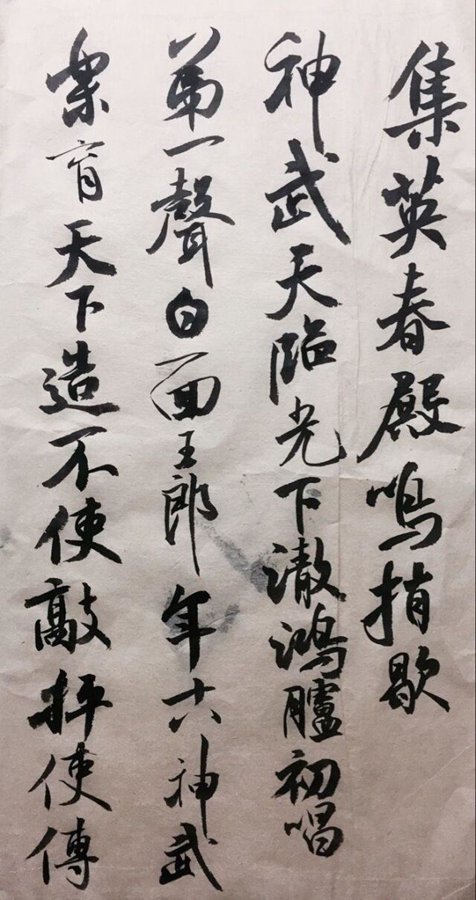 集英春殿鳴捎歇
神武天臨光下澈鴻臚初唱
第一聲白面王郎年十八神武
樂育天下造不使敲抨使傳